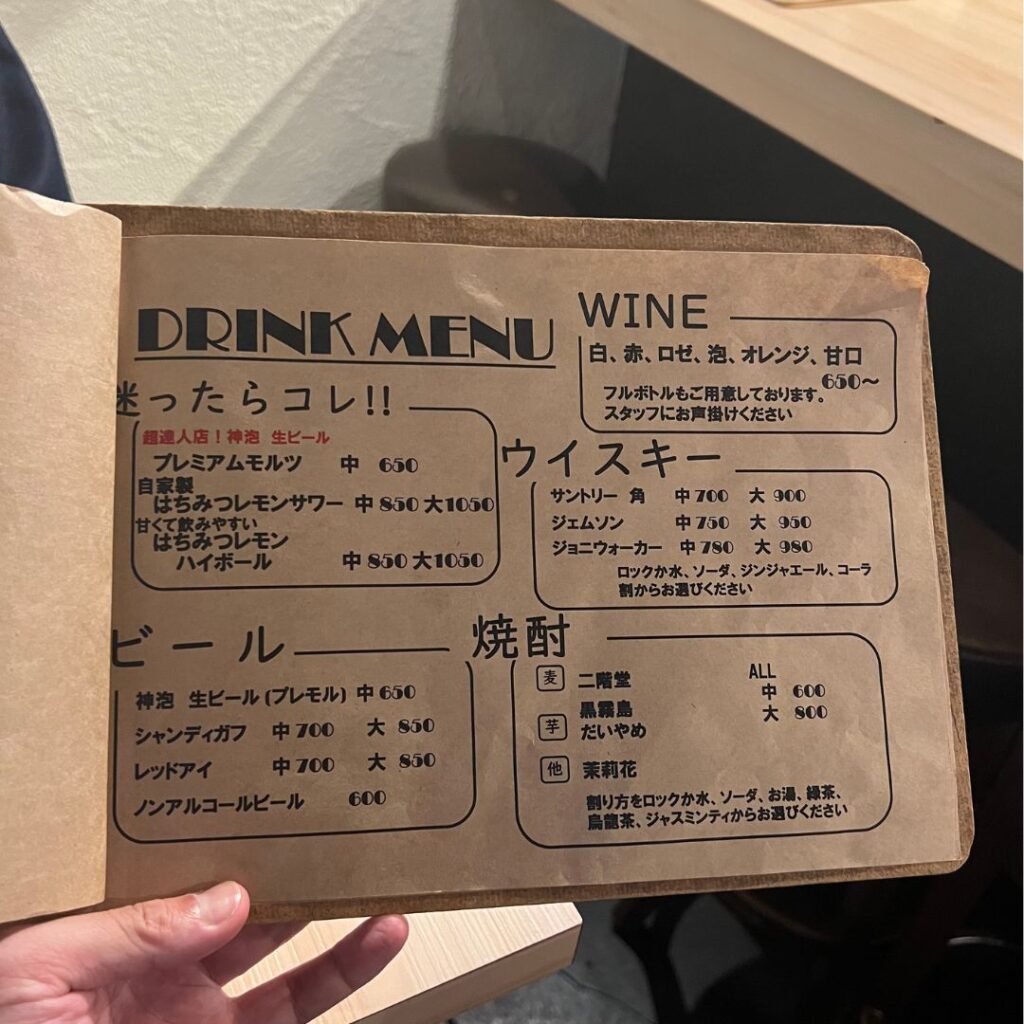 DRINK MENU
迷ったらコレ!!
超達人店！神泡 生ビール
プレミアムモルツ 中 650
自家製
はちみつレモンサワー 中 850 大1050
甘くて飲みやすい
はちみつレモン
ハイボール 中 850 大1050
ビール
神泡 生ビール (プレモル) 中 650
シャンディガフ 中 700 大 850
レッドアイ 中 700 大 850
ノンアルコールビール 600
WINE
白、赤、ロゼ、泡、オレンジ、甘口
650～
フルボトルもご用意しております。
スタッフにお声掛けください
ウイスキー
サントリー 角 中 700 大 900
ジェムソン 中 750 大 950
ジョニウォーカー 中 780 大 980
ロックか水、ソーダ、ジンジャエール、コーラ
割からお選びください
焼酎
麦 二階堂 ALL
中 600
黒霧島 大 800
芋 だいやめ
他 茉莉花
割り方をロックか水、ソーダ、お湯、緑茶、
烏龍茶、ジャスミンティからお選びください